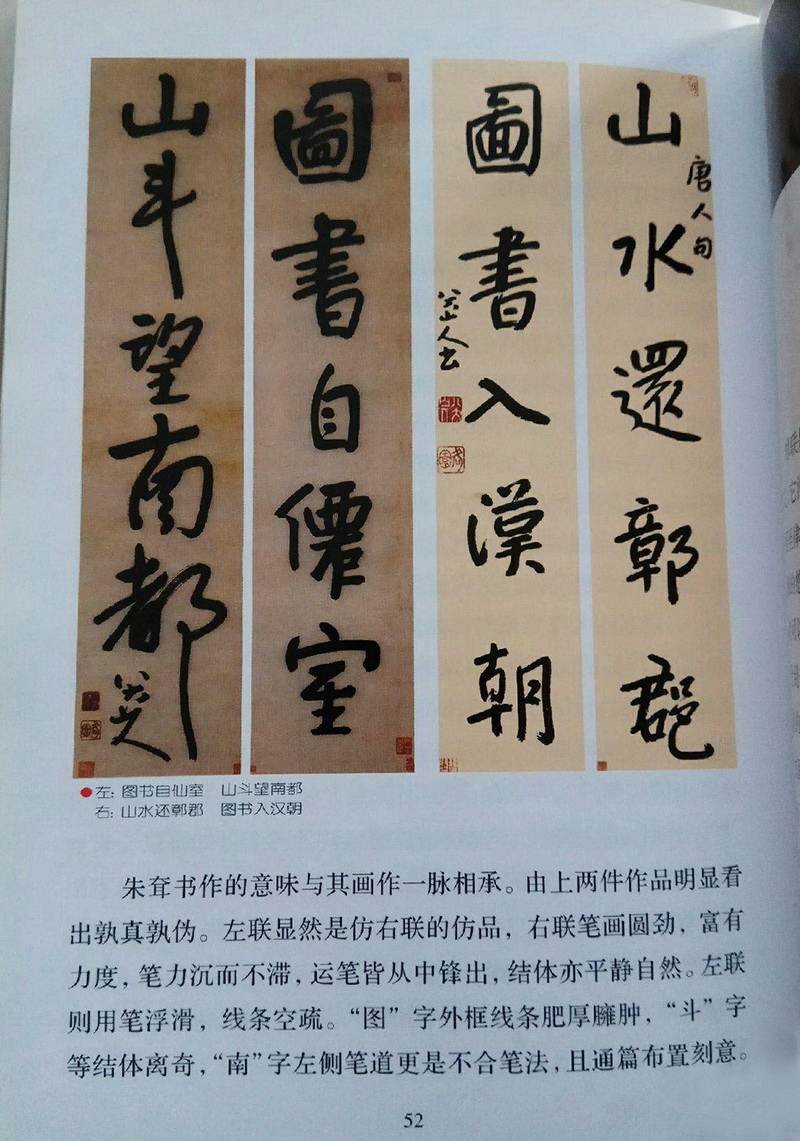 山水還鄣郡
唐人句
圖書入漢朝
八大山人書
圖書自僊室
山斗望南都
八大山人
左: 图书自仙室 山斗望南都
右: 山水还鄣郡 图书入汉朝
朱耷书作的意味与其画作一脉相承。由上两件作品明显看
出孰真孰伪。左联显然是仿右联的仿品，右联笔画圆劲，富有
力度，笔力沉而不滞，运笔皆从中锋出，结体亦平静自然。左联
则用笔浮滑，线条空疏。“图”字外框线条肥厚臃肿，“斗”字
等结体离奇，“南”字左侧笔道更是不合笔法，且通篇布置刻意。
52